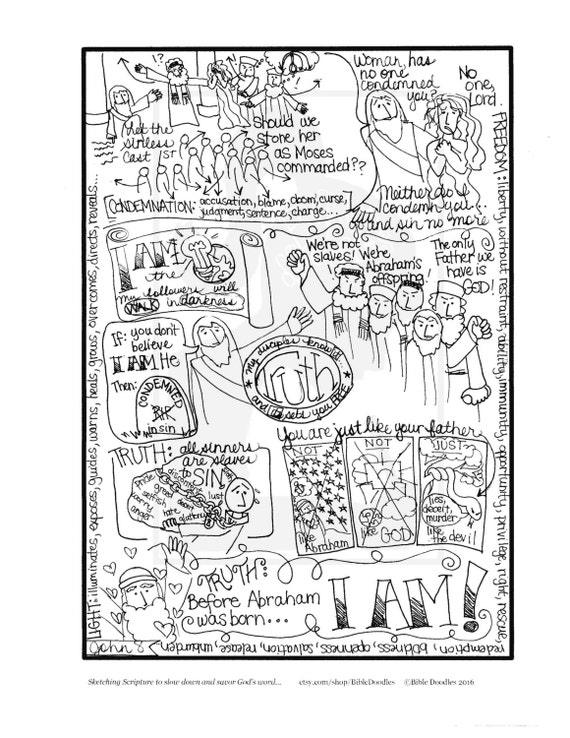 !?
Let the
sinless
Cast 1st
Should we
stone her
as Moses
commanded??
[CONDEMNATION: accusation, blame, doom, curse,
judgment, sentence, charge...]
Woman, has
no one
condemned
you?
No
one,
Lord.
Neither do I
condemn you..
go and sin no more
I AM
the
my followers will
WALK in darkness
We're not
slaves! We're
Abraham's
offspring!
The only
Father we
have is
GOD!
IF: you don't
believe
I AM He
Then:
CONDEMNED
RIP
in sin
* My disciples know it *
Truth
and it sets you FREE
TRUTH: all sinners
are slaves
to SIN
pride
greed
selfish
worry
anger
discontent
deceit
hate
gluttony
lust
You are just like your father
NOT
like
Abraham
NOT
like
GOD
JUST
lies,
deceit,
murder
like
the devil
TRUTH:
Before Abraham
was born...
I AM!
John 8
LIGHT: illuminates, exposes, guides, warns, heals, grows, overcomes, directs, reveals...
FREEDOM: liberty, without restraint, ability, immunity, opportunity, privilege, right, rescue,
redemption, boldness, openness, salvation, release, unburden
Sketching Scripture to slow down and savor God's word... etsy.com/shop/BibleDoodles ©Bible Doodles 2016